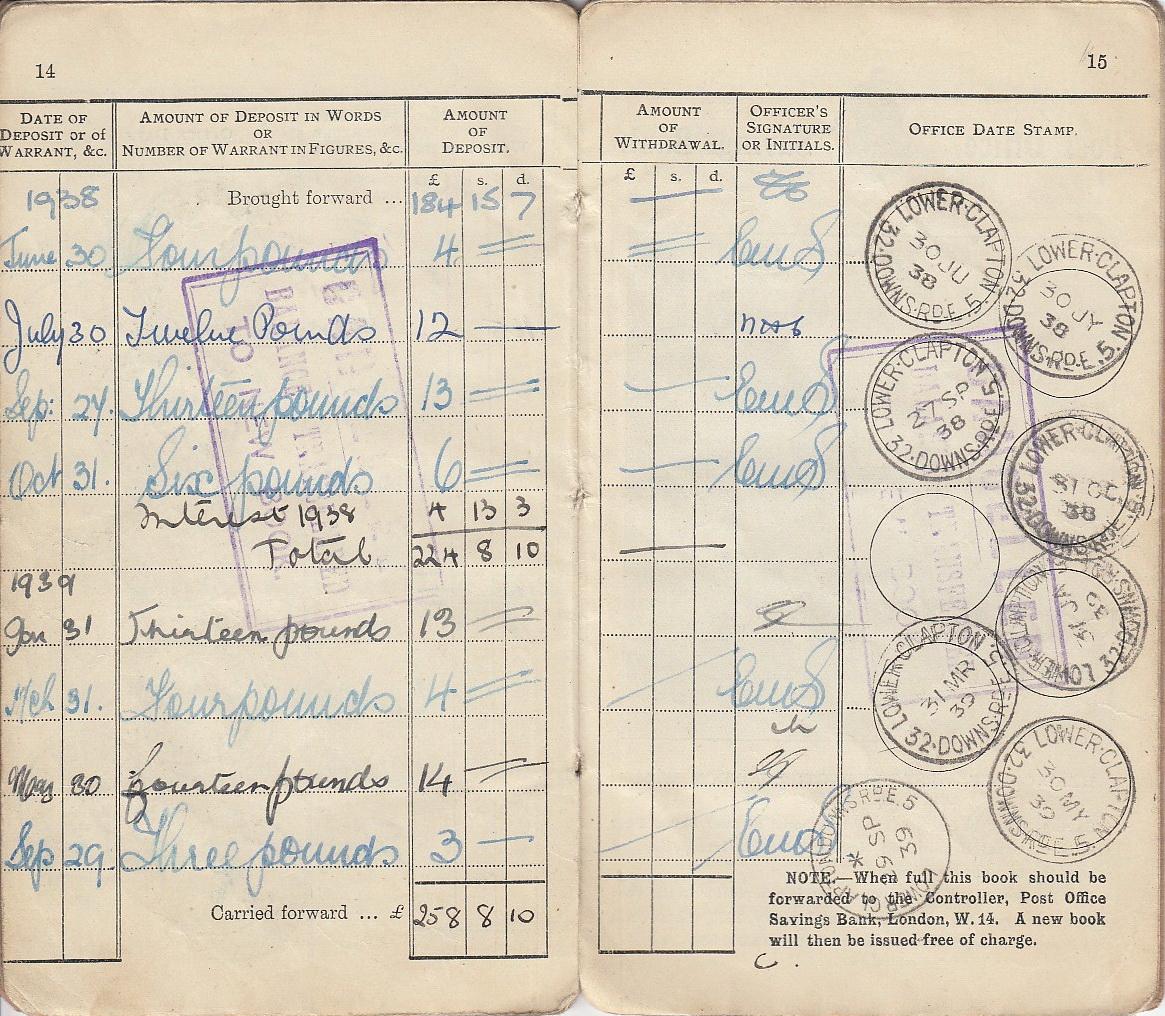 14
DATE OF DEPOSIT or of WARRANT, &c.
AMOUNT OF DEPOSIT IN WORDS OR NUMBER OF WARRANT IN FIGURES, &c.
AMOUNT OF DEPOSIT.
£ s. d.
1938 Brought forward ... 184 15 7
June 30 Four pounds 4
July 30 Twelve Pounds 12
Sep: 27. Thirteen pounds 13
Oct 31. Six pounds 6
Interest 1938 4 13 3
Total 224 8 10
1939
Jan 31 Thirteen pounds 13
Mch 31. Four pounds 4
May 30 fourteen pounds 14
Sep 29 Three pounds 3
Carried forward ... £ 258 8 10
TO NEW BOOK
15
AMOUNT OF WITHDRAWAL.
OFFICER'S SIGNATURE OR INITIALS.
OFFICE DATE STAMP.
£ s. d.
LOWER·CLAPTON 32·DOWNS·RD.E.5.
30 JU
38
LOWER·CLAPTON 32·DOWNS·RD.E.5.
30 JY
38
LOWER·CLAPTON 32·DOWNS·RD.E.5
27 SP
38
LOWER·CLAPTON 32·DOWNS·RD.E.5
31 OC
38
LOWER·CLAPTON 32·DOWNS·RD.E.5
31 JA
39
LOWER·CLAPTON 32·DOWNS·RD.E.5
31 MR
39
LOWER·CLAPTON 32·DOWNS·RD.E.5.
30 MY
39
LOWER CLAPTON DOWNS RD E.5
29 SP
39
*
NOTE.—When full this book should be
forwarded to the Controller, Post Office
Savings Bank, London, W.14. A new book
will then be issued free of charge.